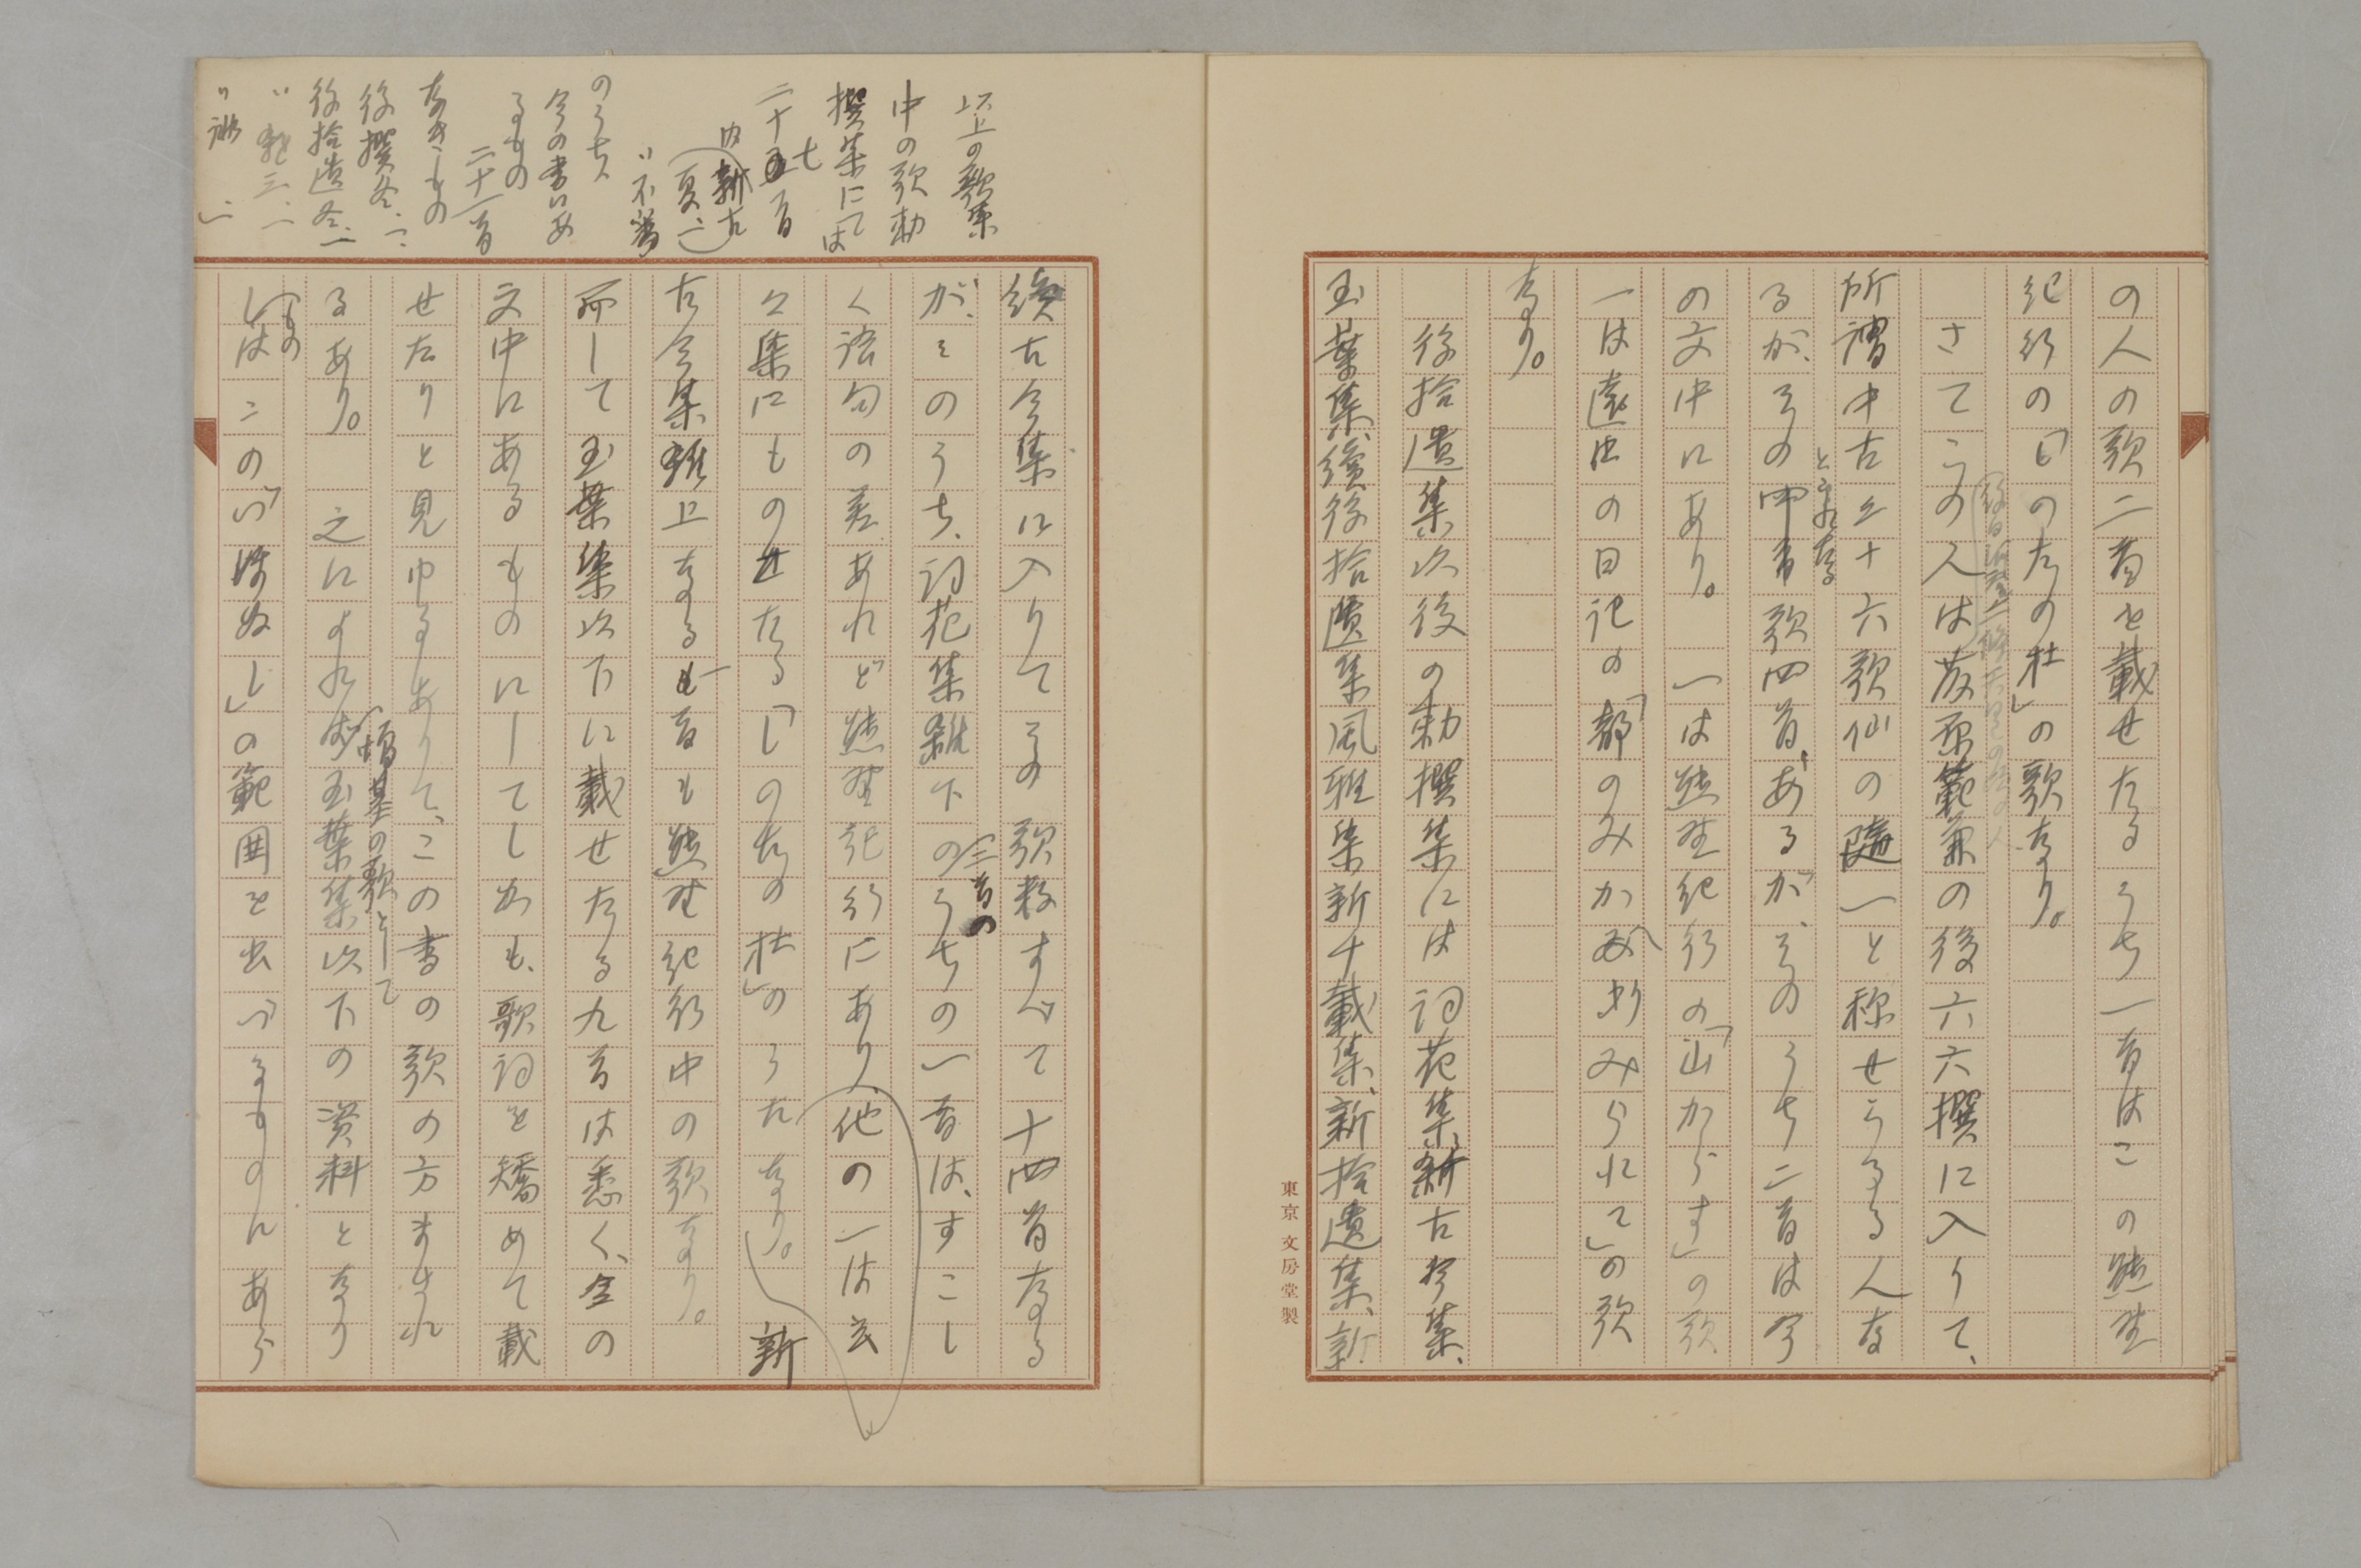 の人の歌二首を載せたるうち一首はこの熊野
紀行の「しのたの杜」の歌なり。
さてこの人は藤原範兼の後六六撰に入りて、
所謂中古三十六歌仙の随一と称せらるる人な
と云ふなる
るが、その中に歌四首あるが、そのうち二首は今
の文中にあり。一は熊野紀行の「山がらす」の歌
一は遠出の日記の「都のみかへりみられて」の歌
なり。
後拾遺集以後の勅撰集には詞花集、新古今集、
玉葉集、續後拾遺集風雅集新千載集、新拾遺集、新
東京文房堂製
以上の歌集
中の歌勅
撰集にては
七
二十首
内新古
夏一
〃不審
のうち
今の書にあ
るもの
二十一首
なきもの
後撰冬、一、
後拾遺冬、一
〃雑三、一
續古今集に入りてその歌数すべて十四首なる
が、そのうち、詞花集雑下のうちの一首は、すこし
三首の
く語句の差あれど熊野紀行にあり、他の一は玄
々集にものせたる「しのたの杜」のうたなり。新
古今集雑上なる一首も熊野紀行中の歌なり。
而して玉葉集以下に載せたる九首は悉く、今の
文中にあるものにしてしかも、歌詞を矯めて載
せたりと見ゆるもありて、この書の歌の方まされ
るあり。之によれば玉葉集以下の資料となり
増基の歌として
しはこの「いほぬし」の範囲を出づるものにあら
もの